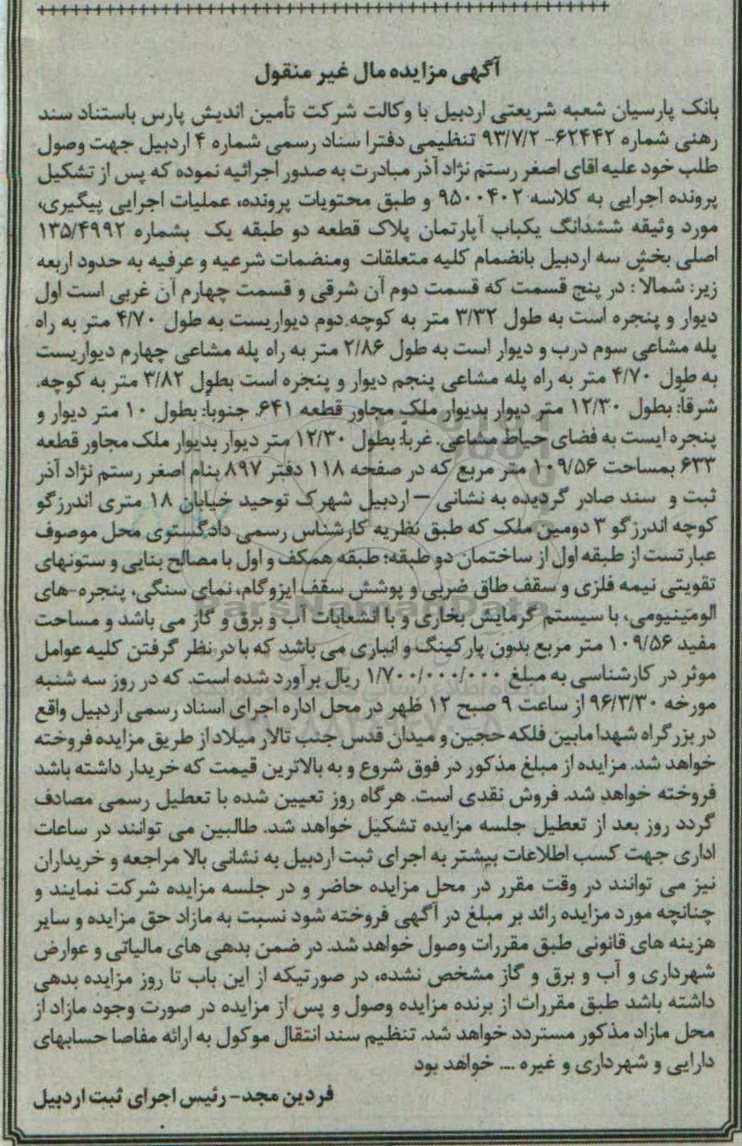 آگهی مزایده مال غیر منقول
بانک پارسیان شعبه شریعتی اردبیل با وکالت شرکت تأمین اندیش پارس باستناد سند
رهنی شماره ۶۲۴۴۲- ۹۳/۷/۲ تنظیمی دفترا سناد رسمی شماره ۴ اردبیل جهت وصول
طلب خود علیه اقای اصغر رستم نژاد آذر مبادرت به صدور اجرائیه نموده که پس از تشکیل
پرونده اجرایی به کلاسه ۹۵۰۰۴۰۲ و طبق محتویات پرونده، عملیات اجرایی پیگیری،
مورد وثیقه ششدانگ یکباب آپارتمان پلاک قطعه دو طبقه یک بشماره ۱۳۵/۴۹۹۲
اصلی بخش سه اردبیل بانضمام کلیه متعلقات ومنضمات شرعیه و عرفیه به حدود اربعه
زیر: شمالا : در پنج قسمت که قسمت دوم آن شرقی و قسمت چهارم آن غربی است اول
دیوار و پنجره است به طول ۳/۳۲ متر به کوچه.دوم دیواریست به طول ۴/۷۰ متر به راه
پله مشاعی سوم درب و دیوار است به طول ۲/۸۶ متر به راه پله مشاعی چهارم دیواریست
به طول ۴/۷۰ متر به راه پله مشاعی پنجم دیوار و پنجره است بطول ۳/۸۲ متر به کوچه.
شرقاً: بطول ۱۲/۳۰ متر دیوار بدیوار ملک مجاور قطعه ۶۴۱. جنوباً: بطول ۱۰ متر دیوار و
پنجره ایست به فضای حیاط مشاعی. غرباً: بطول ۱۲/۳۰ متر دیوار بدیوار ملک مجاور قطعه
۶۳۳ بمساحت ۱۰۹/۵۶ متر مربع که در صفحه ۱۱۸ دفتر ۸۹۷ بنام اصغر رستم نژاد آذر
ثبت و سند صادر گردیده به نشانی – اردبیل شهرک توحید خیابان ۱۸ متری اندرزگو
کوچه اندرزگو ۳ دومین ملک که طبق نظریه کارشناس رسمی دادگستوی محل موصوف
عبارتست از طبقه اول از ساختمان دو طبقه؛ طبقه همکف و اول با مصالح بنایی و ستونهای
تقویتی نیمه فلزی و سقف طاق ضربی و پوشش سقف ایزوگام، نمای سنگی، پنجره-های
الومینیومی، با سیستم گرمایش بخاری و با انشعابات آب و برق و گاز می باشد و مساحت
مفید ۱۰۹/۵۶ متر مربع بدون پارکینگ و انباری می باشد که با در نظر گرفتن کلیه عوامل
موثر در کارشناسی به مبلغ ۱/۷۰۰/۰۰۰/۰۰۰ ریال برآورد شده است. که در روز سه شنبه
مورخه ۹۶/۳/۳۰ از ساعت ۹ صبح ۱۲ ظهر در محل اداره اجرای اسناد رسمی اردبیل واقع
در بزرگراه شهدا مابین فلکه حجین و میدان قدس جنب تالار میلاد از طریق مزایده فروخته
خواهد شد. مزایده از مبلغ مذکور در فوق شروع و به بالاترین قیمت که خریدار داشته باشد
فروخته خواهد شد. فروش نقدی است. هرگاه روز تعیین شده با تعطیل رسمی مصادف
گردد روز بعد از تعطیل جلسه مزایده تشکیل خواهد شد. طالبین می توانند در ساعات
اداری جهت کسب اطلاعات بیشتر به اجرای ثبت اردبیل به نشانی بالا مراجعه و خریداران
نیز می توانند در وقت مقرر در محل مزایده حاضر و در جلسه مزایده شرکت نمایند و
چنانچه مورد مزایده رائد بر مبلغ در آگهی فروخته شود نسبت به مازاد حق مزایده و سایر
هزینه های قانونی طبق مقررات وصول خواهد شد. در ضمن بدهی های مالیاتی و عوارض
شهرداری و آب و برق و گاز مشخص نشده، در صورتیکه از این باب تا روز مزایده بدهی
داشته باشد طبق مقررات از برنده مزایده وصول و پس از مزایده در صورت وجود مازاد از
محل مازاد مذکور مستردد خواهد شد. تنظیم سند انتقال موکول به ارائه مفاصا حسابهای
دارایی و شهرداری و غیره .... خواهد بود
فردین مجد- رئیس اجرای ثبت اردبیل
ParsNamadData